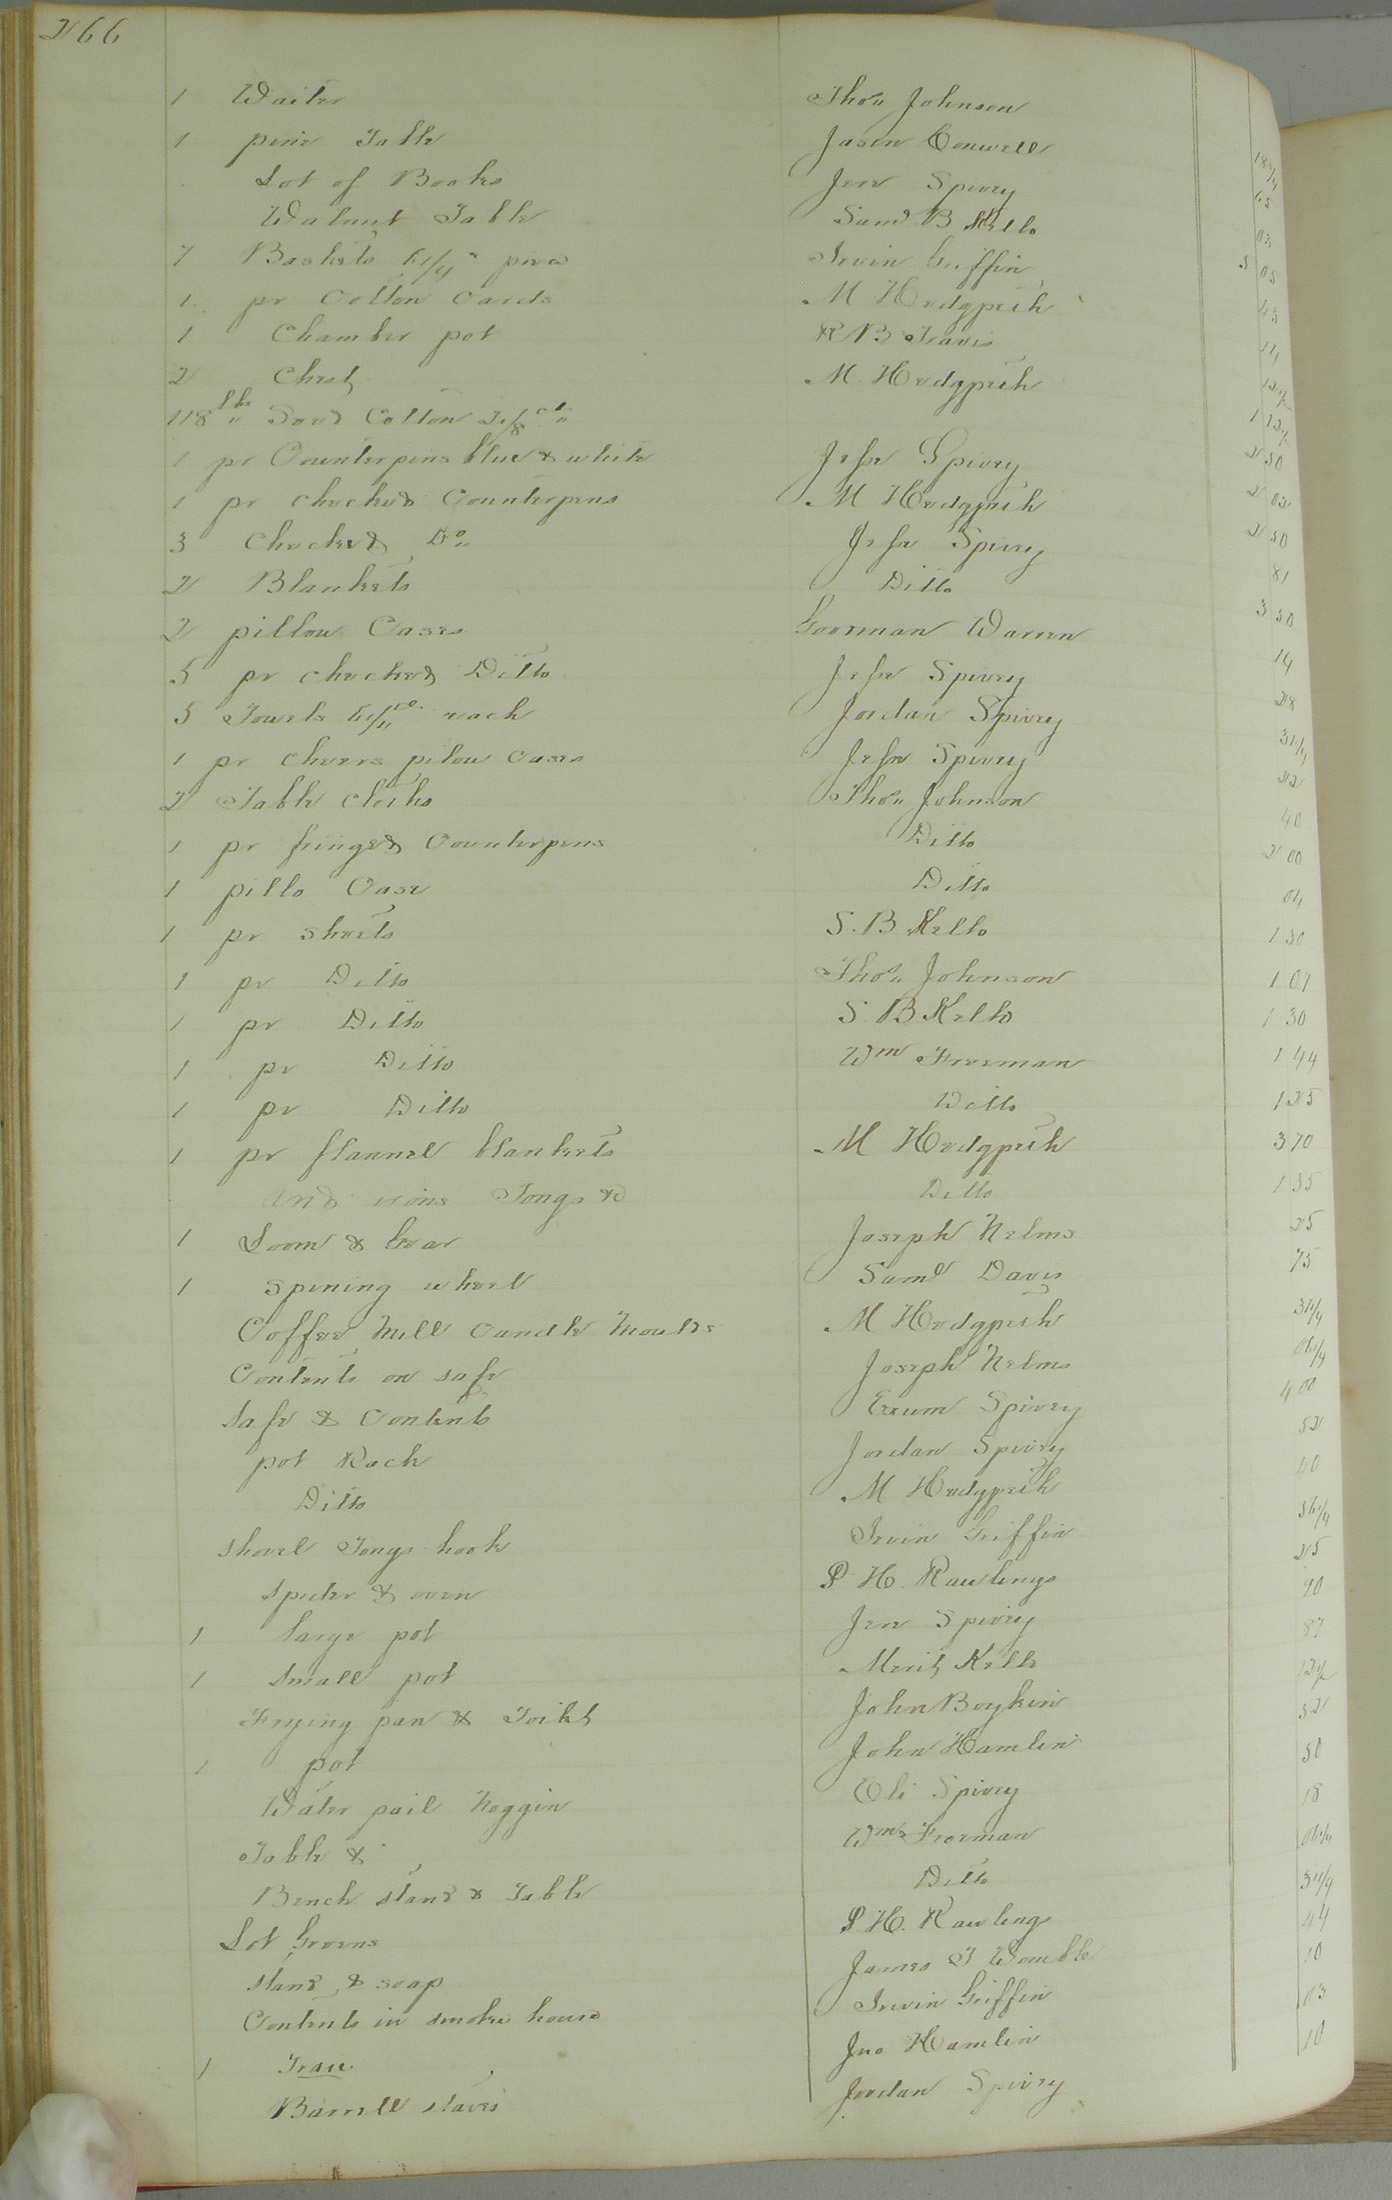 266
1 Waiter Thos Johnson 18 3/4
1 pine Table Jason Conwell
Lot of Books Jese Spivey
Walnut Table Saml B Kello 5 05
7 Baskets 6 1/4 Irvin Griffin
1 pr Cotton Cards M Hedgpeth
1 Chamber pot R B Travis 12 1/2
2 Chest M. Hedgpeth 1 12 1/2
118 lbs Seed Cotton
1 pr Counterpins blue & white Jesse Spivey 2 50
1 pr checked Counterpens M Hedgpeth 2 02
3 Checked Do Jesse Spivey 2 50
2 Blankets Ditto 81
2 pillow Cases Goorman Warren 3 50
5 pr checked Ditto Jesse Spivey 14
5 Towels 6 1/4 each Jordan Spivey 28
1 pr pilow Cases Jesse Spivey 31 1/4
2 Table cloths Thos Johnson
1 pr fringed Counterpens Ditto 40
1 pillo Case Ditto 2 00
1 pr sheets S. B Kello 04
1 pr Ditto Thos Johnson 1 50
1 pr Ditto S. B Kello 1 07
1 pr Ditto Wm Freeman 1 30
1 pr Ditto Ditto 1 44
1 pr flannel blankets M Hedgpeth 1 25
And irons Tongs & Ditto 3 70
1 Loom & Gear Joseph Nelms 1 35
1 spining wheel Saml Davis 25
Coffee Mill Candle Moulds M Hedgpeth 75
Contents on safe Joseph Nelms 31 1/4
safe & Contents Exum Spivey 06 1/4
pot Rack Jordan Spivey 4 00
Ditto M Hedgpeth 52
shovel Tongs hook Irvin Griffin 40
spider & oven P H. Rawlings 56 1/4
1 large pot Jese Spivey 25
1 small pot Merit Kello 90
Frying pan & John Boykin 87
1 pot John Hamlin 12 1/2
Water pail Noggin Eli Spivey 52
Table & Wm Freeman 50
Bench stand & Table Ditto 18
Lot P H. Rawlings 06 1/4
stand & soap James T Womble 31 1/4
Contents in smoke house Irvin Griffin 44
1 Jno Hamlin 10
Barrell staves Jordan Spivey 03
10